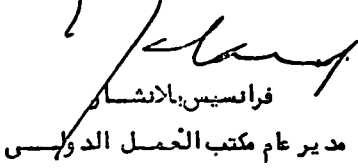 فرانسيس بلانشار
مدير عام مكتب العمل الدولي